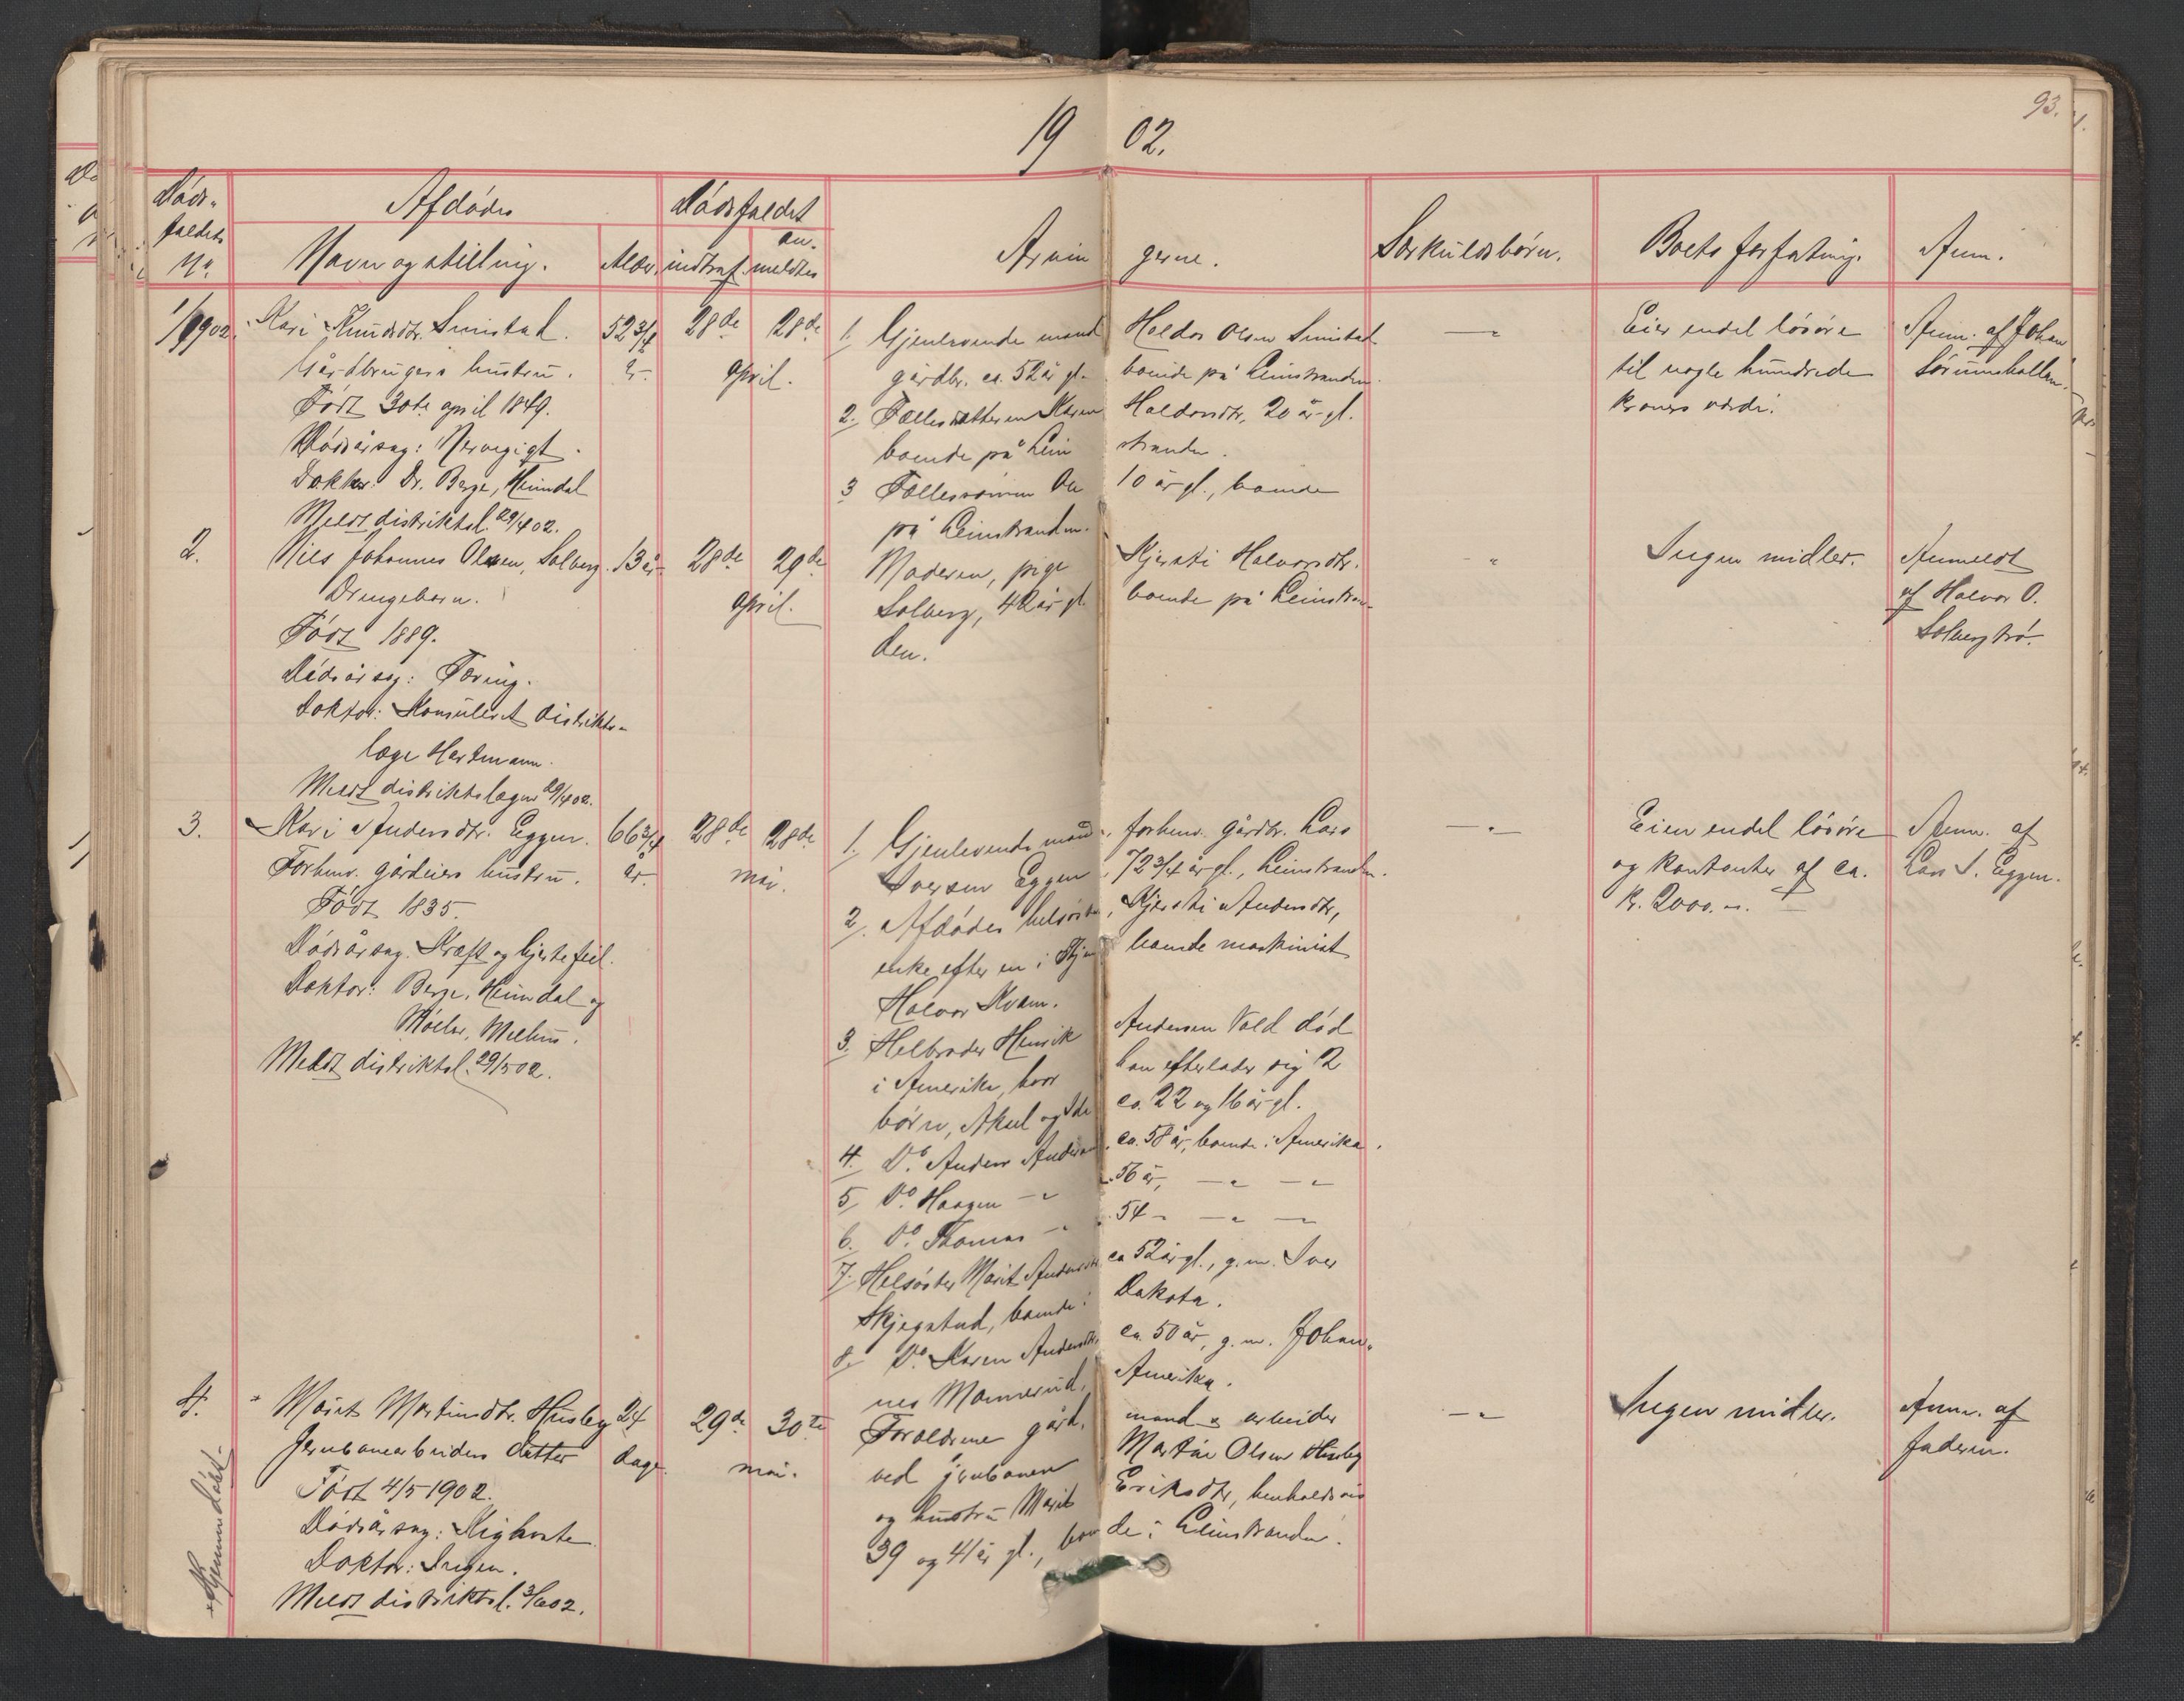 93.
19 02.
Døds-
faldets
No.
Afdødes
Navn og stilling.
Alder.
Dødsfaldet
indtraf.
an-
meldtes
Arvin gerne.
Særkuldsbørn.
Boets forfatning.
Anm.
1/1902.
Kari Knudsdtr. Simstad.
Gårdbrugers hustru.
Født 30te april 1849.
Dødsårsag: Nervegigt.
Doktor: Dr. Berge, Heimdal
Meldt distriktsl. 29/4 02.
52 3/4
år.
28de
28de
april.
1. Gjenlevende mand Haldor Olsen Simstad
gårdbr. ca. 52 år gl. boende på Leinstranden.
2. Fællesdatteren Karen Haldorsdtr. 20 år gl.
boende på Lein stranden.
3 Fællessønnen Ole 10 år gl., boende
på Leinstranden.
—"—
Eier endel løsøre
til nogle hundrede
kroners værdi.
Anm. af Johan
Sørumshallen.
2.
Nils Johannes Olsen, Solberg.
Drengebarn.
Født 1889.
Dødsårsag: Tæring.
Doktor: Konsuleret distrikts-
læge Hartmann.
Meldt distriktslægen 29/4 02.
13 år.
28de
29de
april.
Moderen, pige Kjersti Halvorsdtr.
Solberg, 42 år gl. boende på Leinstran-
den.
"
Ingen midler.
Anmeldt
af Halvor O.
Solbergtrø.
3.
Kari Andersdtr. Eggen.
Forhenv. gårdeiers hustru.
Født 1835.
Dødsårsag. Kræft og hjertefeil.
Doktor: Berge, Heimdal og
Møller, Melhus.
Meldt distriktsl. 29/5 02.
66 3/4
år.
28de
28de
mai.
1. Gjenlevende mand, forhenv. gårdbr. Lars
Iversen Eggen, 72 3/4 år gl., Leinstranden.
2. Afdødes helsøster, Kjersti Andersdtr,
enke efter en i boende maskinist
Halvor Kvam.
3. Helbroder Henrik Andersen Vold død
i Amerika, hvor han efterlader sig 2
børn, Aksel og Ida ca. 22 og 16 år gl.
4. Do. Anders Andersen, ca. 58 år, boende i Amerika.
5, Do. Haagen —"— 56 år, —"— —"—
6. Do. Thomas —"— 54 " —"— —"—
7. Helsøster Marit Andersdtr. ca 52 år gl., g. m. Iver
Skjegstad, boende i Dakota.
8. Do. Karen Andersdtr, ca. 50 år, g. m. Johan-
nes Mannerud, Amerika.
—"—
Eier endel løsøre
og kontanter af ca.
kr. 2000.–.
Anm. af
Lars I. Eggen.
4.
* Marit Martinsdtr. Husby
Jernbanearbeiders datter
Født 4/5 1902.
Dødsårsag: Kighoste
Doktor: Ingen.
Meldt distriktsl. 3/6 02.
* Hjemmedøbt.
24
dage.
29de
30te
mai.
Forældrene gårdmand & arbeider
ved jernbanen Martin Olsen Husby
og hustru Marit Eriksdtr, henholdsvis
39 og 41 år gl., boende i Leinstranden.
—"—
Ingen midler.
Anm. af
faderen.